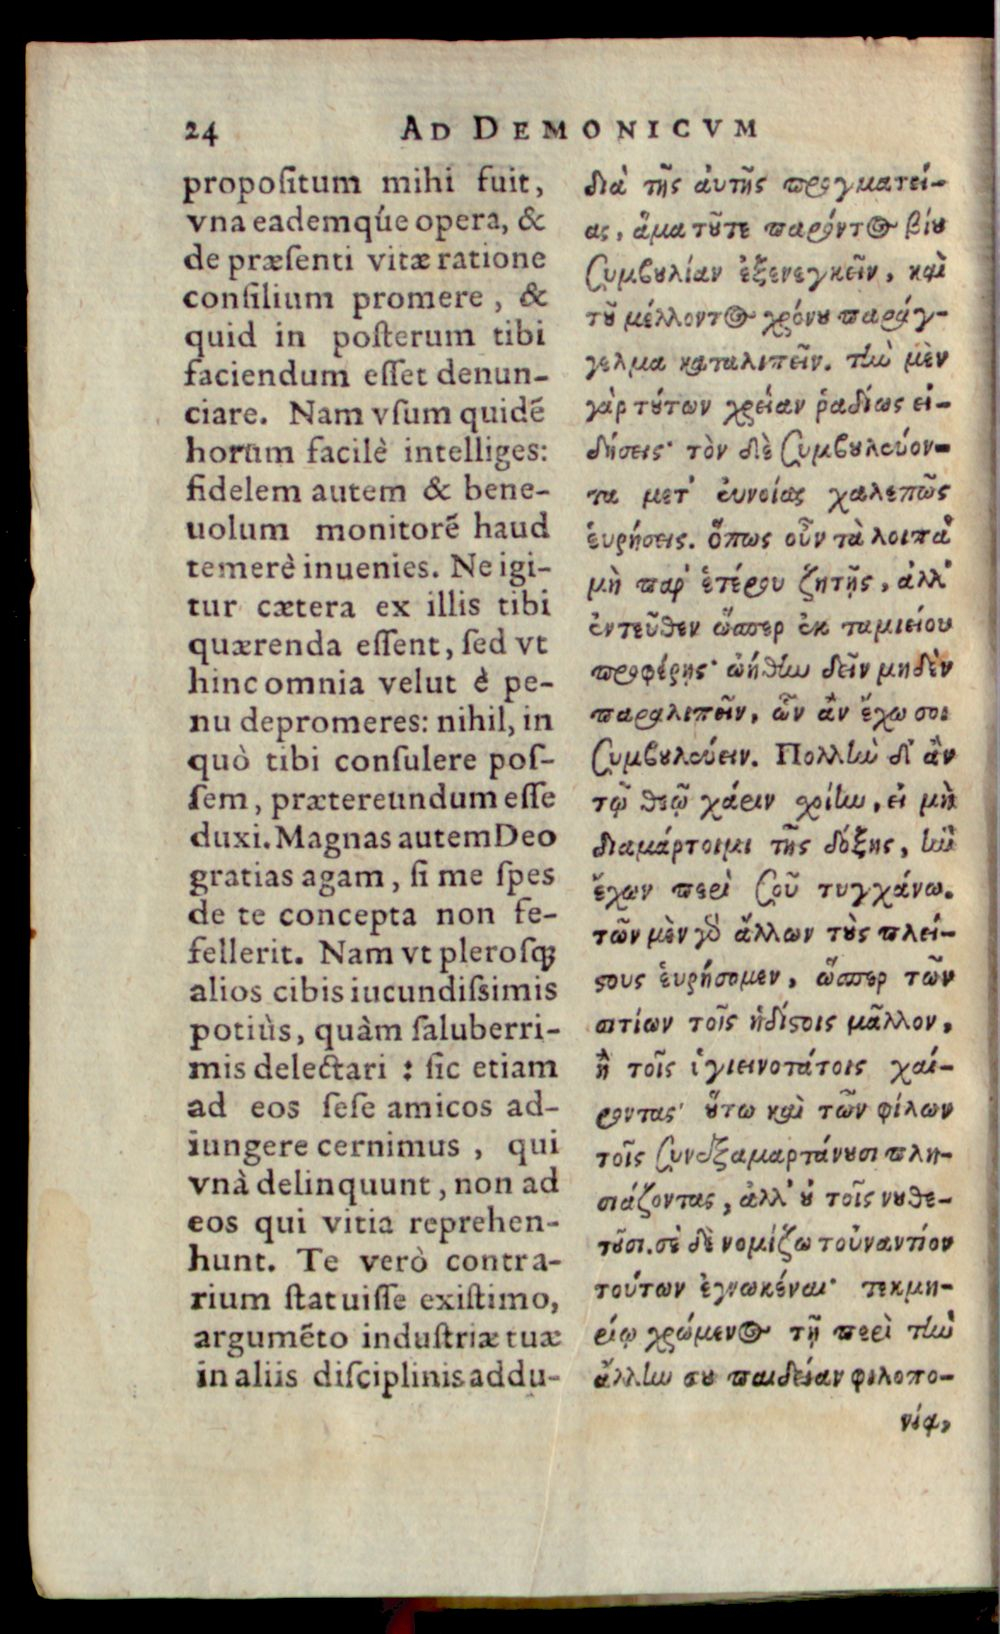 24 AD DEMONICVM
propoſitum mihi fuit,
vna eademq́ue opera, &
de præſenti vitæ ratione
conſilium promere, &
quid in poſterum tibi
faciendum eſſet denun-
ciare. Nam vſum quidẽ
horum facilè intelliges:
fidelem autem & bene-
uolum monitorẽ haud
temerè inuenies. Ne igi-
tur cætera ex illis tibi
quærenda eſſent, ſed vt
hinc omnia velut è pe-
nu depromeres: nihil, in
quò tibi conſulere poſ-
ſem, prætereundum eſſe
duxi. Magnas autem Deo
gratias agam, ſi me ſpes
de te concepta non fe-
fellerit. Nam vt pleroſq;
alios cibis iucundiſsimis
potiùs, quàm ſaluberri-
mis delectari : ſic etiam
ad eos ſeſe amicos ad-
iungere cernimus, qui
vnà delinquunt, non ad
eos qui vitia reprehen-
hunt. Te verò contra-
rium ſtatuiſſe exiſtimo,
argumẽto induſtriæ tuæ
in aliis diſciplinis addu-
διὰ τῆς ἀυτῆς πραγματεί-
ας, ἅμα τȣ͂τε παρόντος βίȣ
συμϐȣλίαν ἐξενεγκεῖν, καὶ
τȣ͂ μέλλοντος χρόνȣ παράγ-
γελμα καταλιπεῖν. τὴν μὲν
γὰρ τȣ́των χρείαν ῥαδίως εἰ-
δήσεις· τὸν δὲ συμϐȣλεύον-
τα μετ' ἐυνοίας χαλεπῶς
ἑυρήσεις. ὅπως οὖν τὰ λοιπὰ
μὴ παρ' ἑτέρου ζητῇς, ἀλλ'
ἐντεῦθεν ὥσπερ ἐκ ταμιείου
προφέρῃς· ὠήθην δεῖν μηδὲν
παραλιπεῖν, ὧν ἂν ἔχω σοι
συμϐȣλεύειν. Πολλὴν δ' ἂν
τῷ θεῷ χάριν χοίην, εἰ μὴ
διαμάρτοιμι τῆς δόξης, ἣν
ἔχων περὶ σοῦ τυγχάνω.
τῶν μὲν γὸ ἄλλων τȣ̀ς πλεί-
ϛους ἑυρήσομεν, ὥσπερ τῶν
σιτίων τοῖς ἡδίϛοις μᾶλλον,
ἢ τοῖς ὑγιεινοτάτοις χαί-
ροντας· ȣ́τω καὶ τῶν φίλων
τοῖς συνεξαμαρτάνȣσι πλη-
σιάζοντας, ἀλλ' ȣ̓ τοῖς νȣθε-
τȣ͂σι. σὲ δὲ νομίζω τοὐναντίον
τούτων ἐγνωκέναι· τεκμη-
ρίῳ χρώμενος τῇ περὶ τὴν
ἄλλην σȣ παιδείαν φιλοπο-
νίᾳ,